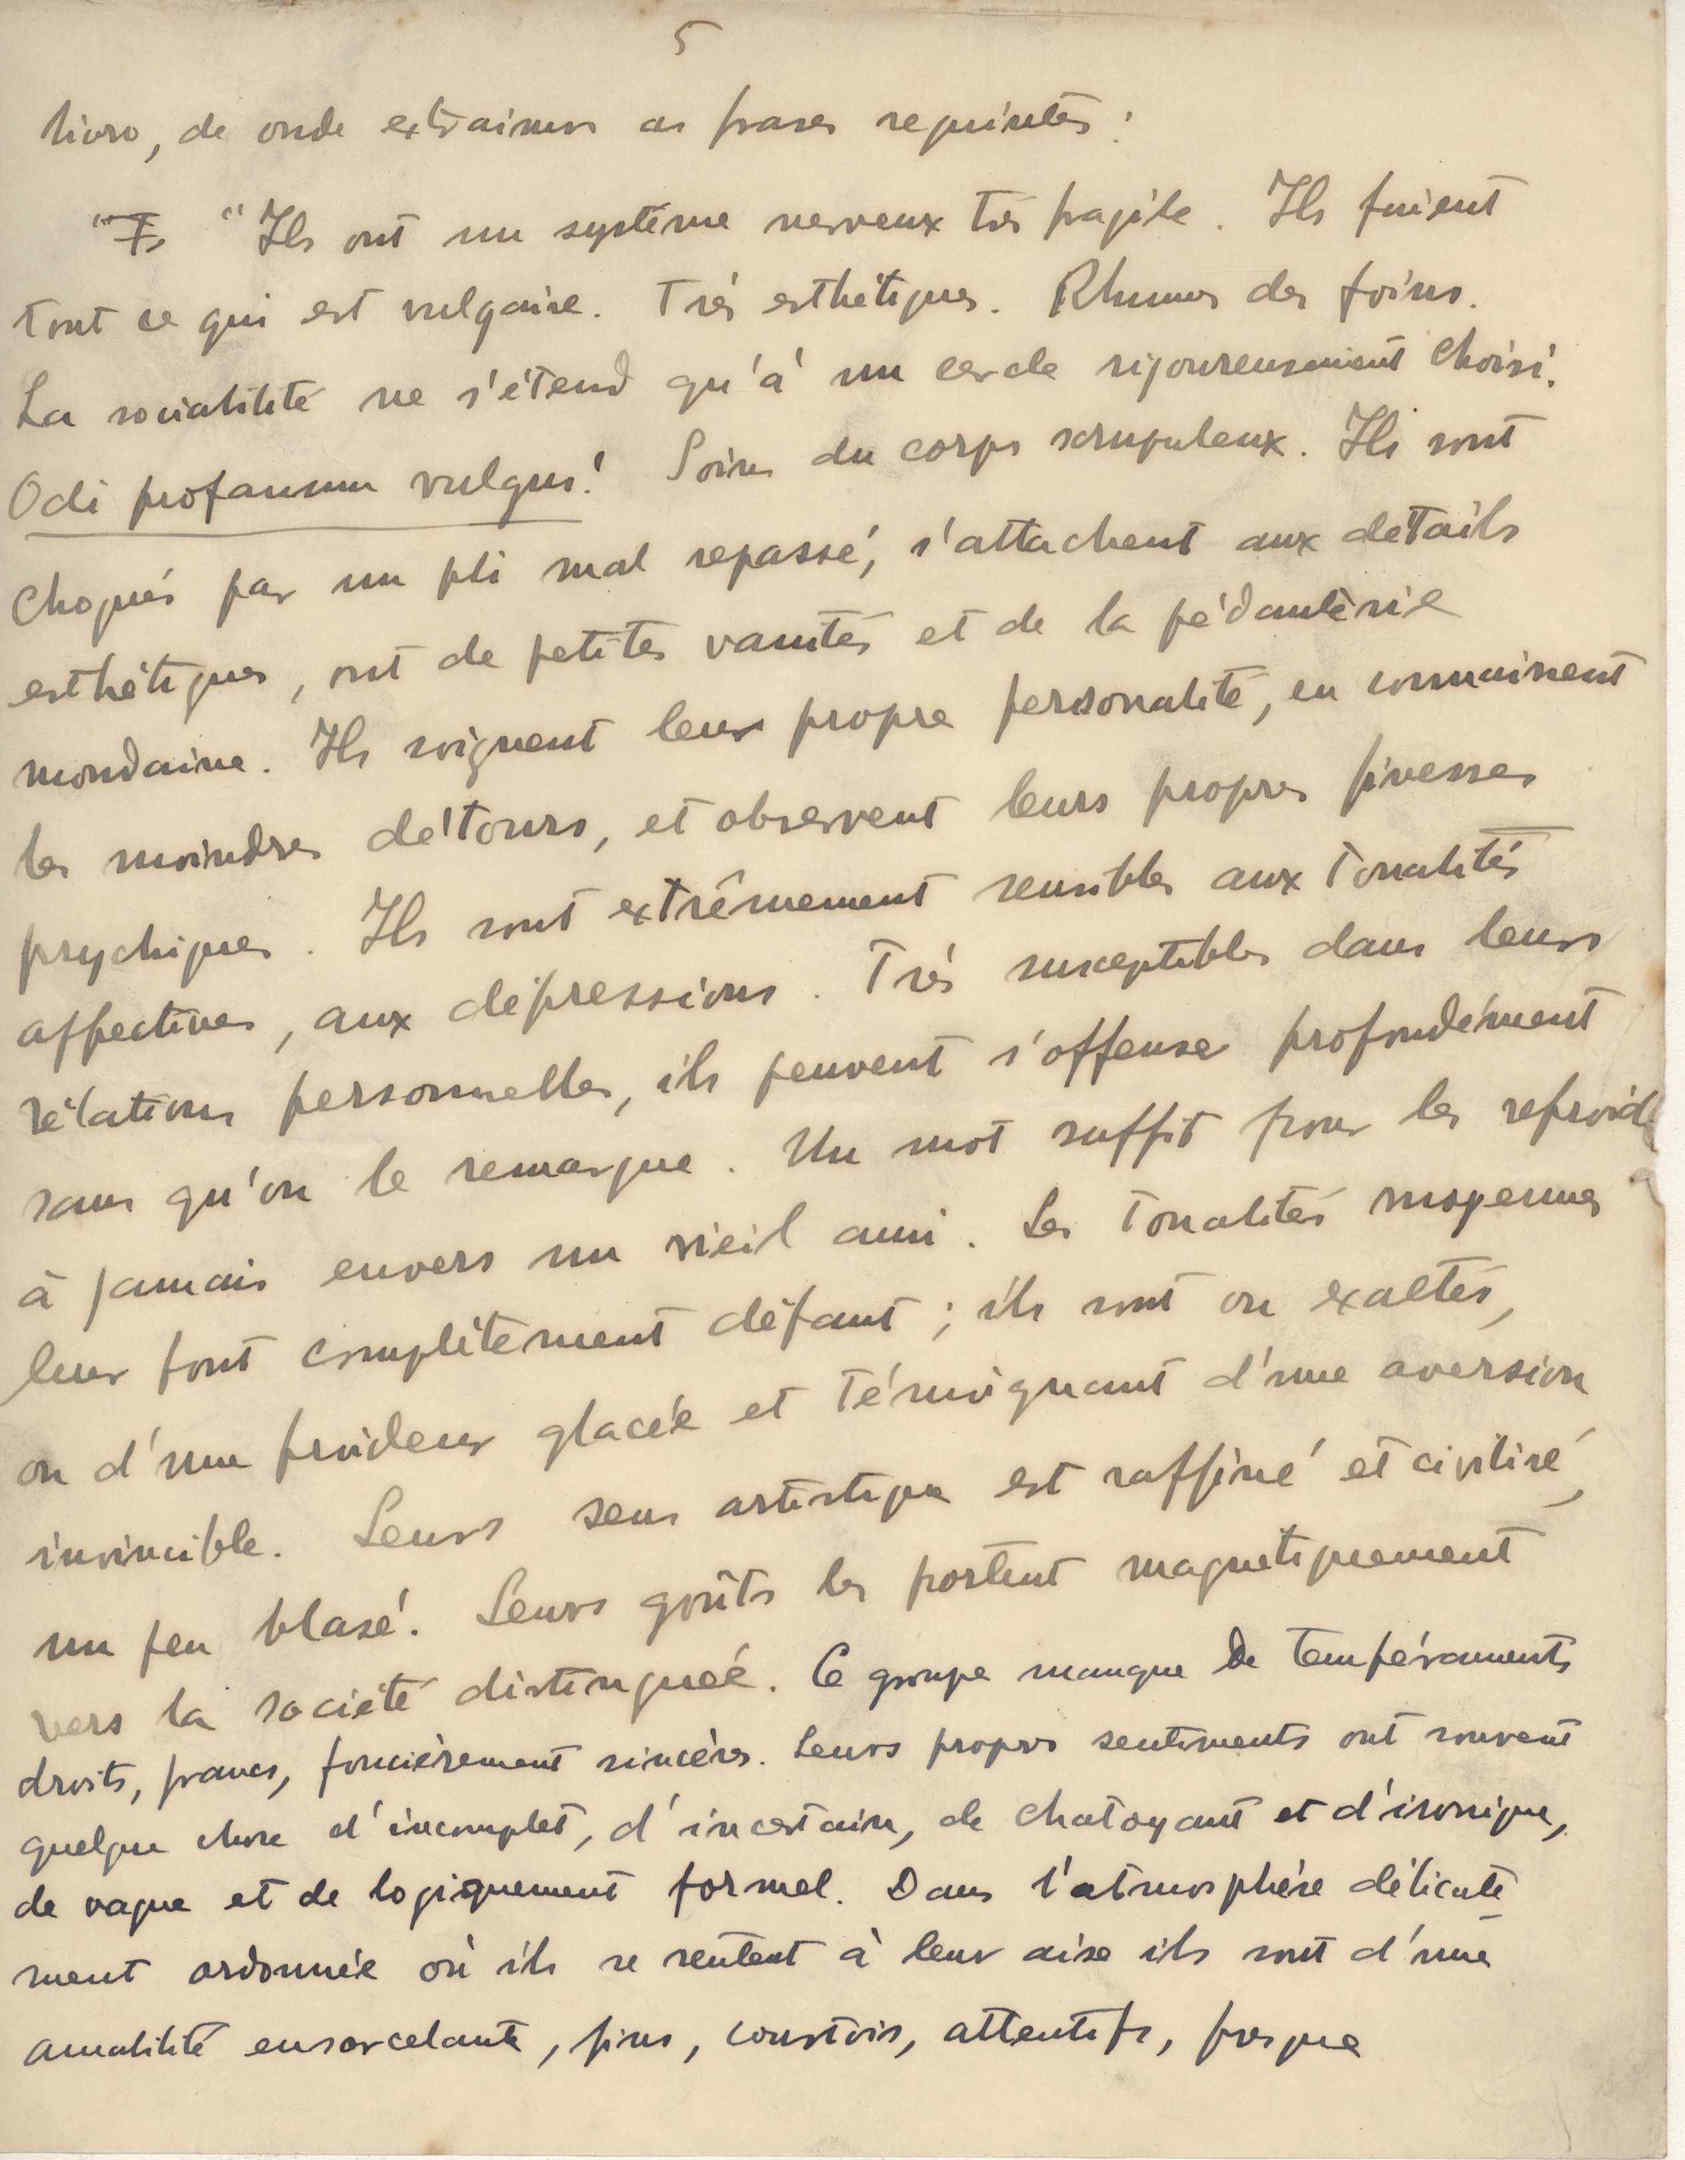 5
livro, de onde extraimos as frases seguintes:
"Is "Ils ont un système nerveux très fragile. Ils fuient
tout ce qui est vulgaire. Très esthétiques. Rhumes des foins.
La sociabilité ne s'étend qu'à un cercle rigoureusement choisi.
Odi profanum vulgus! Soins du corps scrupuleux. Ils sont
choqués par un pli mal repassé, s'attachent aux details
esthétiques, ont de petites vanités et de la pédantèrie
mondaine. Ils soignent leur propre personalité, en connaissent
les moindres détours, et observent leurs propres finesses
psychiques. Ils sont extrêmement sensibles aux tonalités
affectives, aux dépressions. Très susceptibles dans leurs
rélations personnelles, ils peuvent s'offenser profondément
sans qu'on le remarque. Un mot suffit pour les refroidi
à jamais envers un vieil ami. Les tonalités moyennes
leur font complètement défaut; ils sont ou exaltés,
ou d'une froideur glacée et témoignant d'une aversion
invincible. Leurs sens artistique est raffiné et civilisé,
un peu blasé. Leurs goûts les portent magnetiquement
vers la société distinguée. Ce groupe manque de tempéraments
droits, francs, foncièrement sincères. Leurs propres sentiments ont souvent
quelque chose d'incomplet, d'incertain, de chatoyant et d'ironique,
de vague et de logiquement formel. Dans l'atmosphère délicate
ment ordonnée où ils se sentent à leur aise ils sont d'une
amabilité ensorcelante, fins, courtois, attentifs, presque